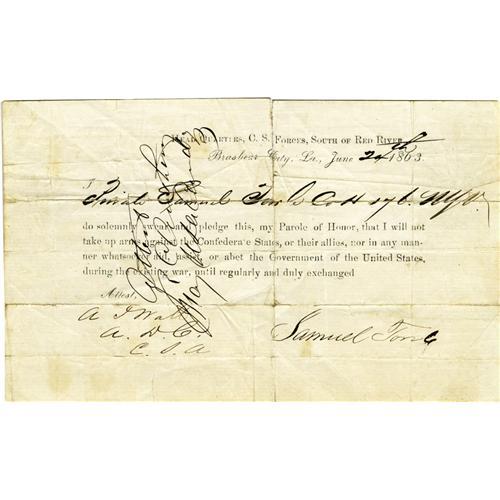 HEAD-QUARTERS, C. S. FORCES, SOUTH OF RED RIVER,
Brashear City, La., June 24th 1863.
I,
Private Samuel Co H 176. NYV
do solemnly swear and pledge this, my Parole of Honor, that I will not
take up arms against the Confederate States, or their allies, nor in any man-
ner whatsoever aid, assist, or abet the Government of the United States,
during the existing war, until regularly and duly exchanged
Attest,
A J Watt
A. D. C.
C. S. A
Samuel
Maj